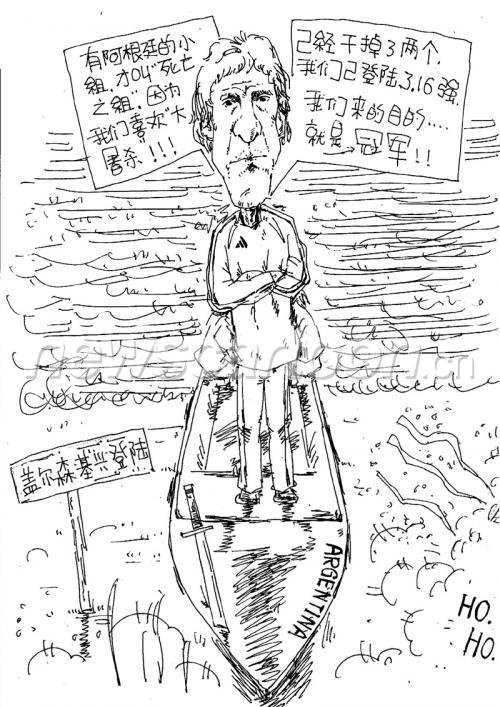 有阿根廷的小
组,才叫“死亡
之组”因为
我们喜欢“大
屠杀”!!!
己经干掉了两个,
我们己登陆了16强,
我们来的目的....
就是→冠军!!
newscartoon.cn
盖尔森基"登陆
ARGENTINA
HO.
HO.